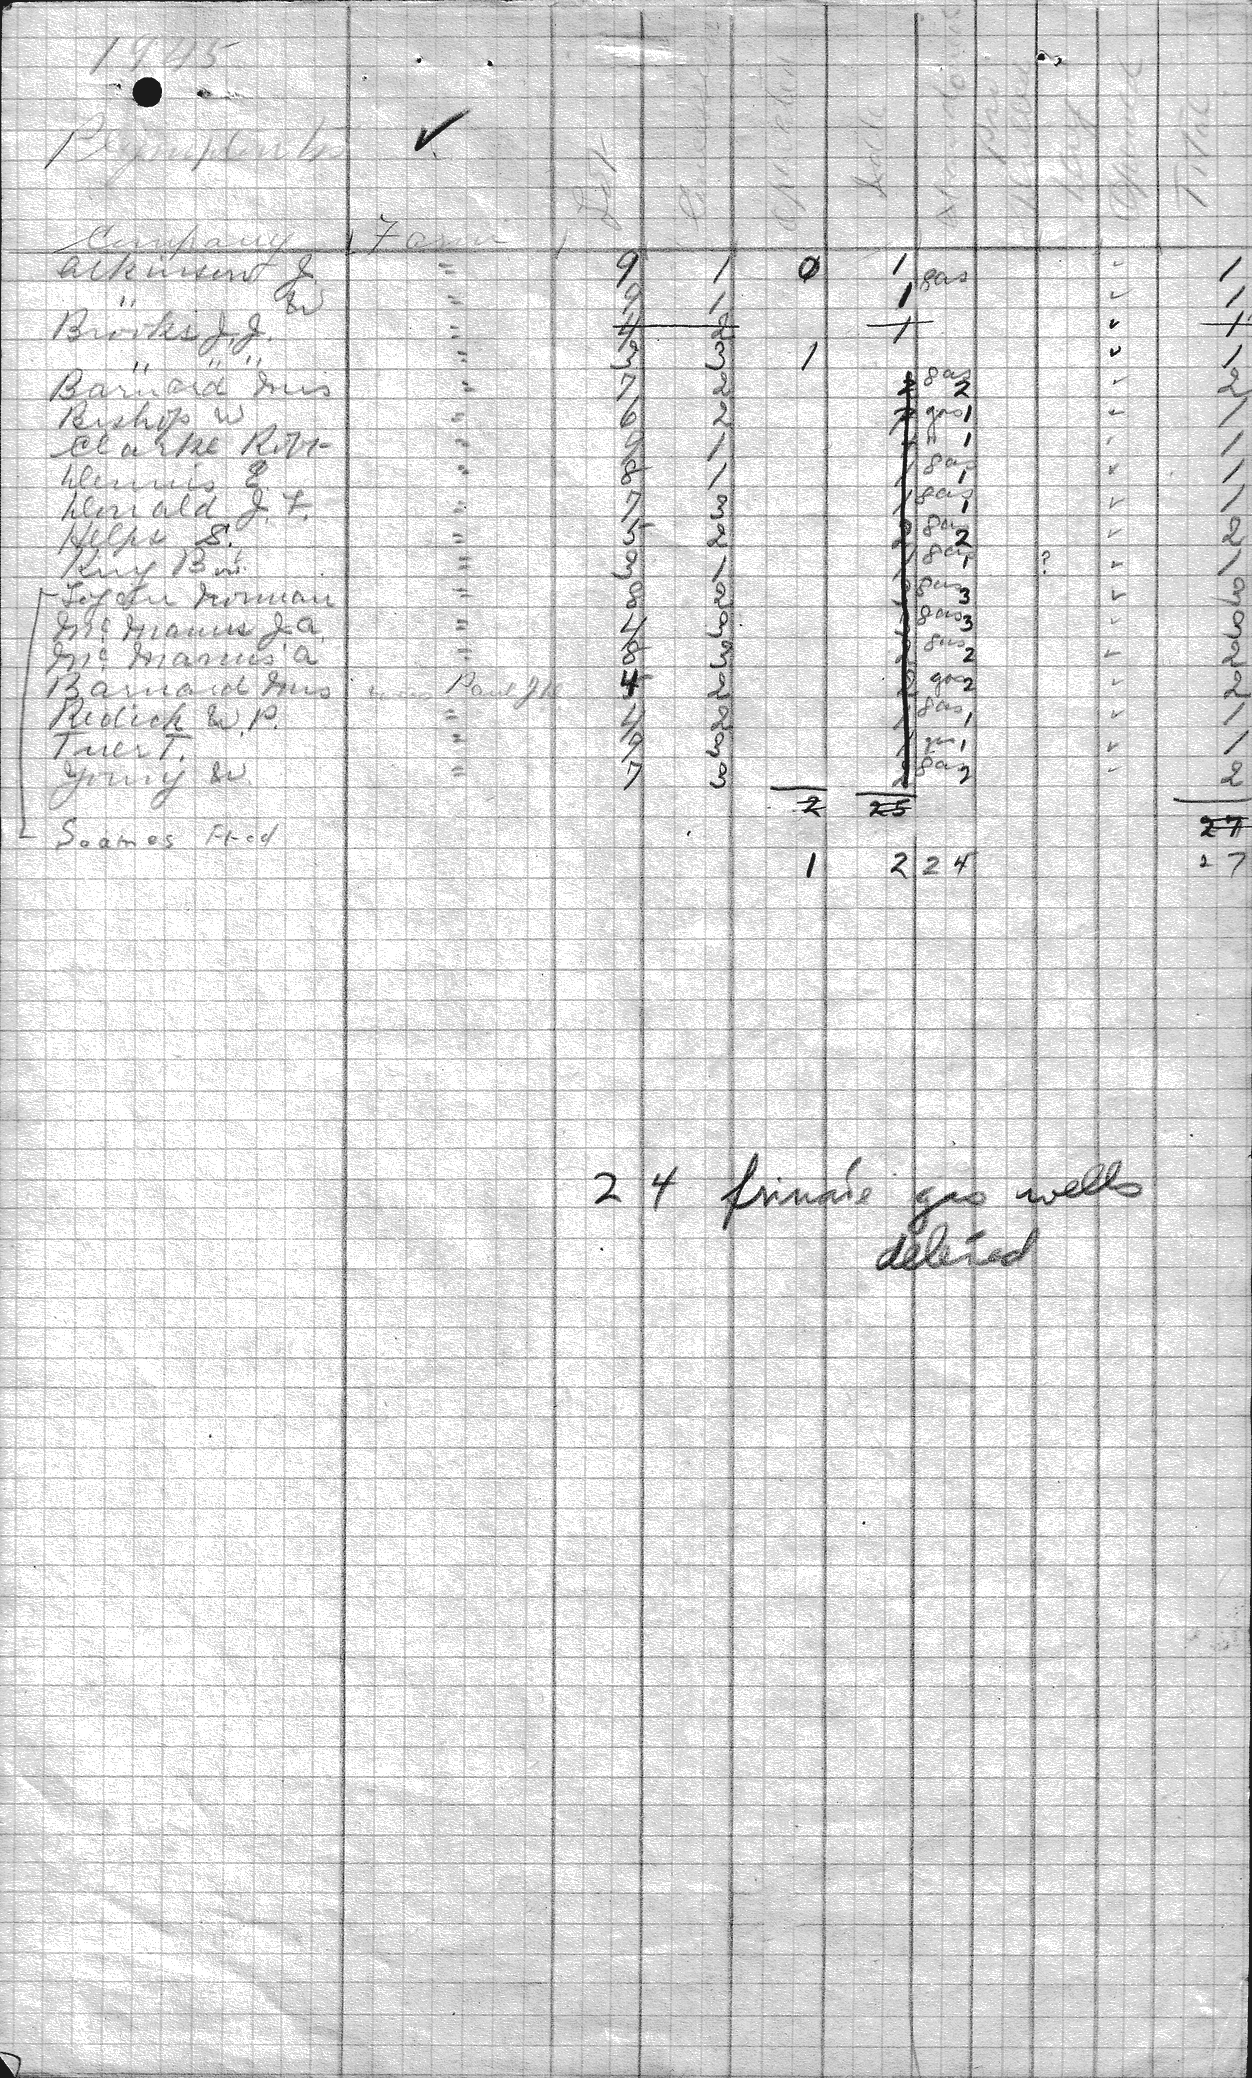 1945
✓
Lot Concession Operating Idle Abandoned Private Total
Company Farm
Atkinson J. " 9 1 0 1 gas ✓ 1
" W " 9 1 1 ✓ 1
Brooks J.J. " 4 2 1 ✓ 1
" " " " 3 3 1 ✓ 1
Barnard Mrs " 7 2 2 gas 2 ✓ 2
Bishop W " 6 2 gas 1 ✓ 1
Clarke Robt " 9 1 " 1 ✓ 1
Dennis E. " 8 1 1 gas 1 ✓ 1
Donald J. F. " 7 3 1 gas 1 ✓ 1
Helps S. " 5 2 2 gas 2 ✓ 2
King B. " 3 1 1 gas 1 ? ✓ 1
Logan Norman " 8 2 gas 3 ✓ 3
Mc Manus J.A. " 4 3 gas 3 ✓ 3
Mc Manus A " 8 3 2 gas 2 ✓ 2
Barnard Mrs 4 2 2 gas 2 ✓ 2
Redick W.P. " 4 2 1 gas 1 ✓ 1
Tuer T. " 9 3 1 gas 1 ✓ 1
Young W. " 7 3 2 gas 2 ✓ 2
2 25 27
Soames Fred
1 2 24 27
24 private gas wells
deleted